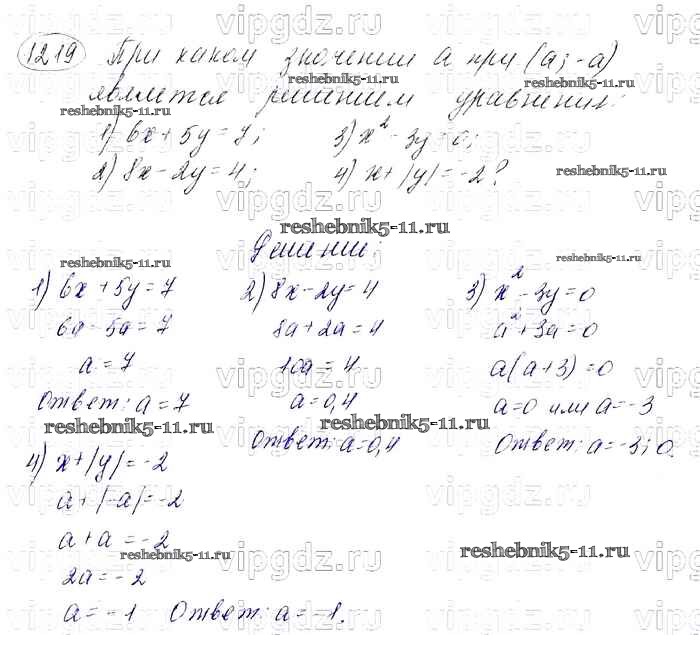 1219 При каком значении a пара (a; -a)
является решением уравнения:
1) 6x + 5y = 7; 3) x² - 3y = 0;
2) 8x - 2y = 4; 4) x + |y| = -2?
Решение:
1) 6x + 5y = 7
6a - 5a = 7
a = 7
Ответ: a = 7
2) 8x - 2y = 4
8a + 2a = 4
10a = 4
a = 0,4
Ответ: a = 0,4
3) x² - 3y = 0
a² + 3a = 0
a(a + 3) = 0
a = 0 или a = -3
Ответ: a = -3; 0.
4) x + |y| = -2
a + |-a| = -2
a + a = -2
2a = -2
a = -1 Ответ: a = -1.
vipgdz.ru
reshebnik5-11.ru